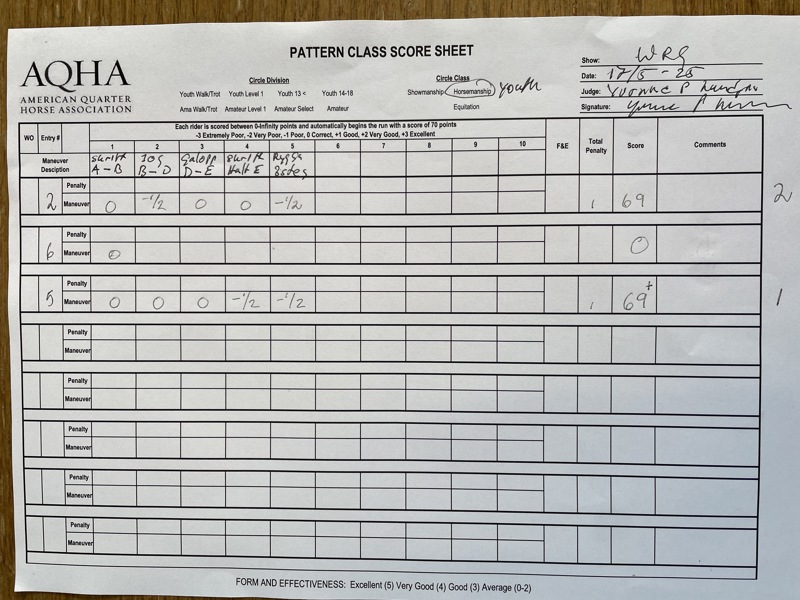 PATTERN CLASS SCORE SHEET
AQHA
AMERICAN QUARTER
HORSE ASSOCIATION
Circle Division
Youth Walk/Trot Youth Level 1 Youth 13 < Youth 14-18
Ama Walk/Trot Amateur Level 1 Amateur Select Amateur
Circle Class
Showmanship Horsemanship Youth
Equitation
Show: WRG
Date: 17/5-25
Judge: Yvonne P
Signature: Yvonne P
WO Entry # Each rider is scored between 0-Infinity points and automatically begins the run with a score of 70 points
-3 Extremely Poor, -2 Very Poor, -1 Poor, 0 Correct, +1 Good, +2 Very Good, +3 Excellent
1 2 3 4 5 6 7 8 9 10 F&E Total Penalty Score Comments
Maneuver Desciption Skritt A-B Jog B-D Galopp D-E Skritt Halt E Rygga 3steg
2 Penalty
Maneuver 0 -1/2 0 0 -1/2 69 2
6 Penalty
Maneuver 0 0
5 Penalty
Maneuver 0 0 0 -1/2 -1/2 69+ 1
Penalty
Maneuver
Penalty
Maneuver
Penalty
Maneuver
Penalty
Maneuver
Penalty
Maneuver
FORM AND EFFECTIVENESS: Excellent (5) Very Good (4) Good (3) Average (0-2)